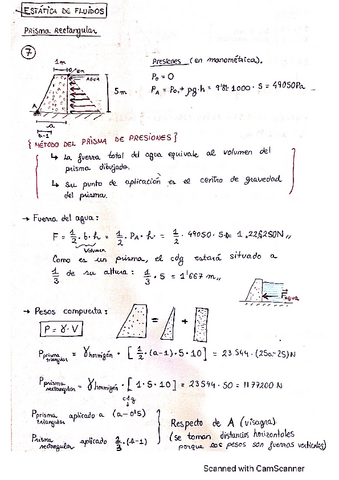 ESTÁTICA DE FLUIDOS
Prisma Rectangular
7
Presiones (en manométrica).
P₀ = 0
P_A = P₀ + ρg·h = 9'81·1000·5 = 49050Pa
1m
AGUA
5m
A
a
a-1
{ MÉTODO DEL PRISMA DE PRESIONES }
↳ La fuerza total del agua equivale al volumen del
prisma dibujado.
↳ Su punto de aplicación es el centro de gravedad
del prisma.
→ Fuerza del agua:
F = 1/2 · b · h = 1/2 · P_A · h = 1/2 · 49050 · 5
Volumen
Como es un prisma, el cdg estará situado a
1/3 de su altura: 1/3 · 5 = 1'667 m,,
F agua
→ Pesos compuerta:
P = γ · V
P prisma triangular = γ hormigón · [ 1/2 · (a-1) · 5 · 10 ] = 23544 · (25a-25) N
P prisma rectangular = γ hormigón · [ 1 · 5 · 10 ] = 23544 · 50 = 1177200 N
cdg
P prisma triangular aplicado a (a-0'5)
Prisma rectangular aplicado 2/3 · (a-1)
Respecto de A (visagra)
(se toman distancias horizontales
porque los pesos son fuerzas verticales)
Scanned with CamScanner